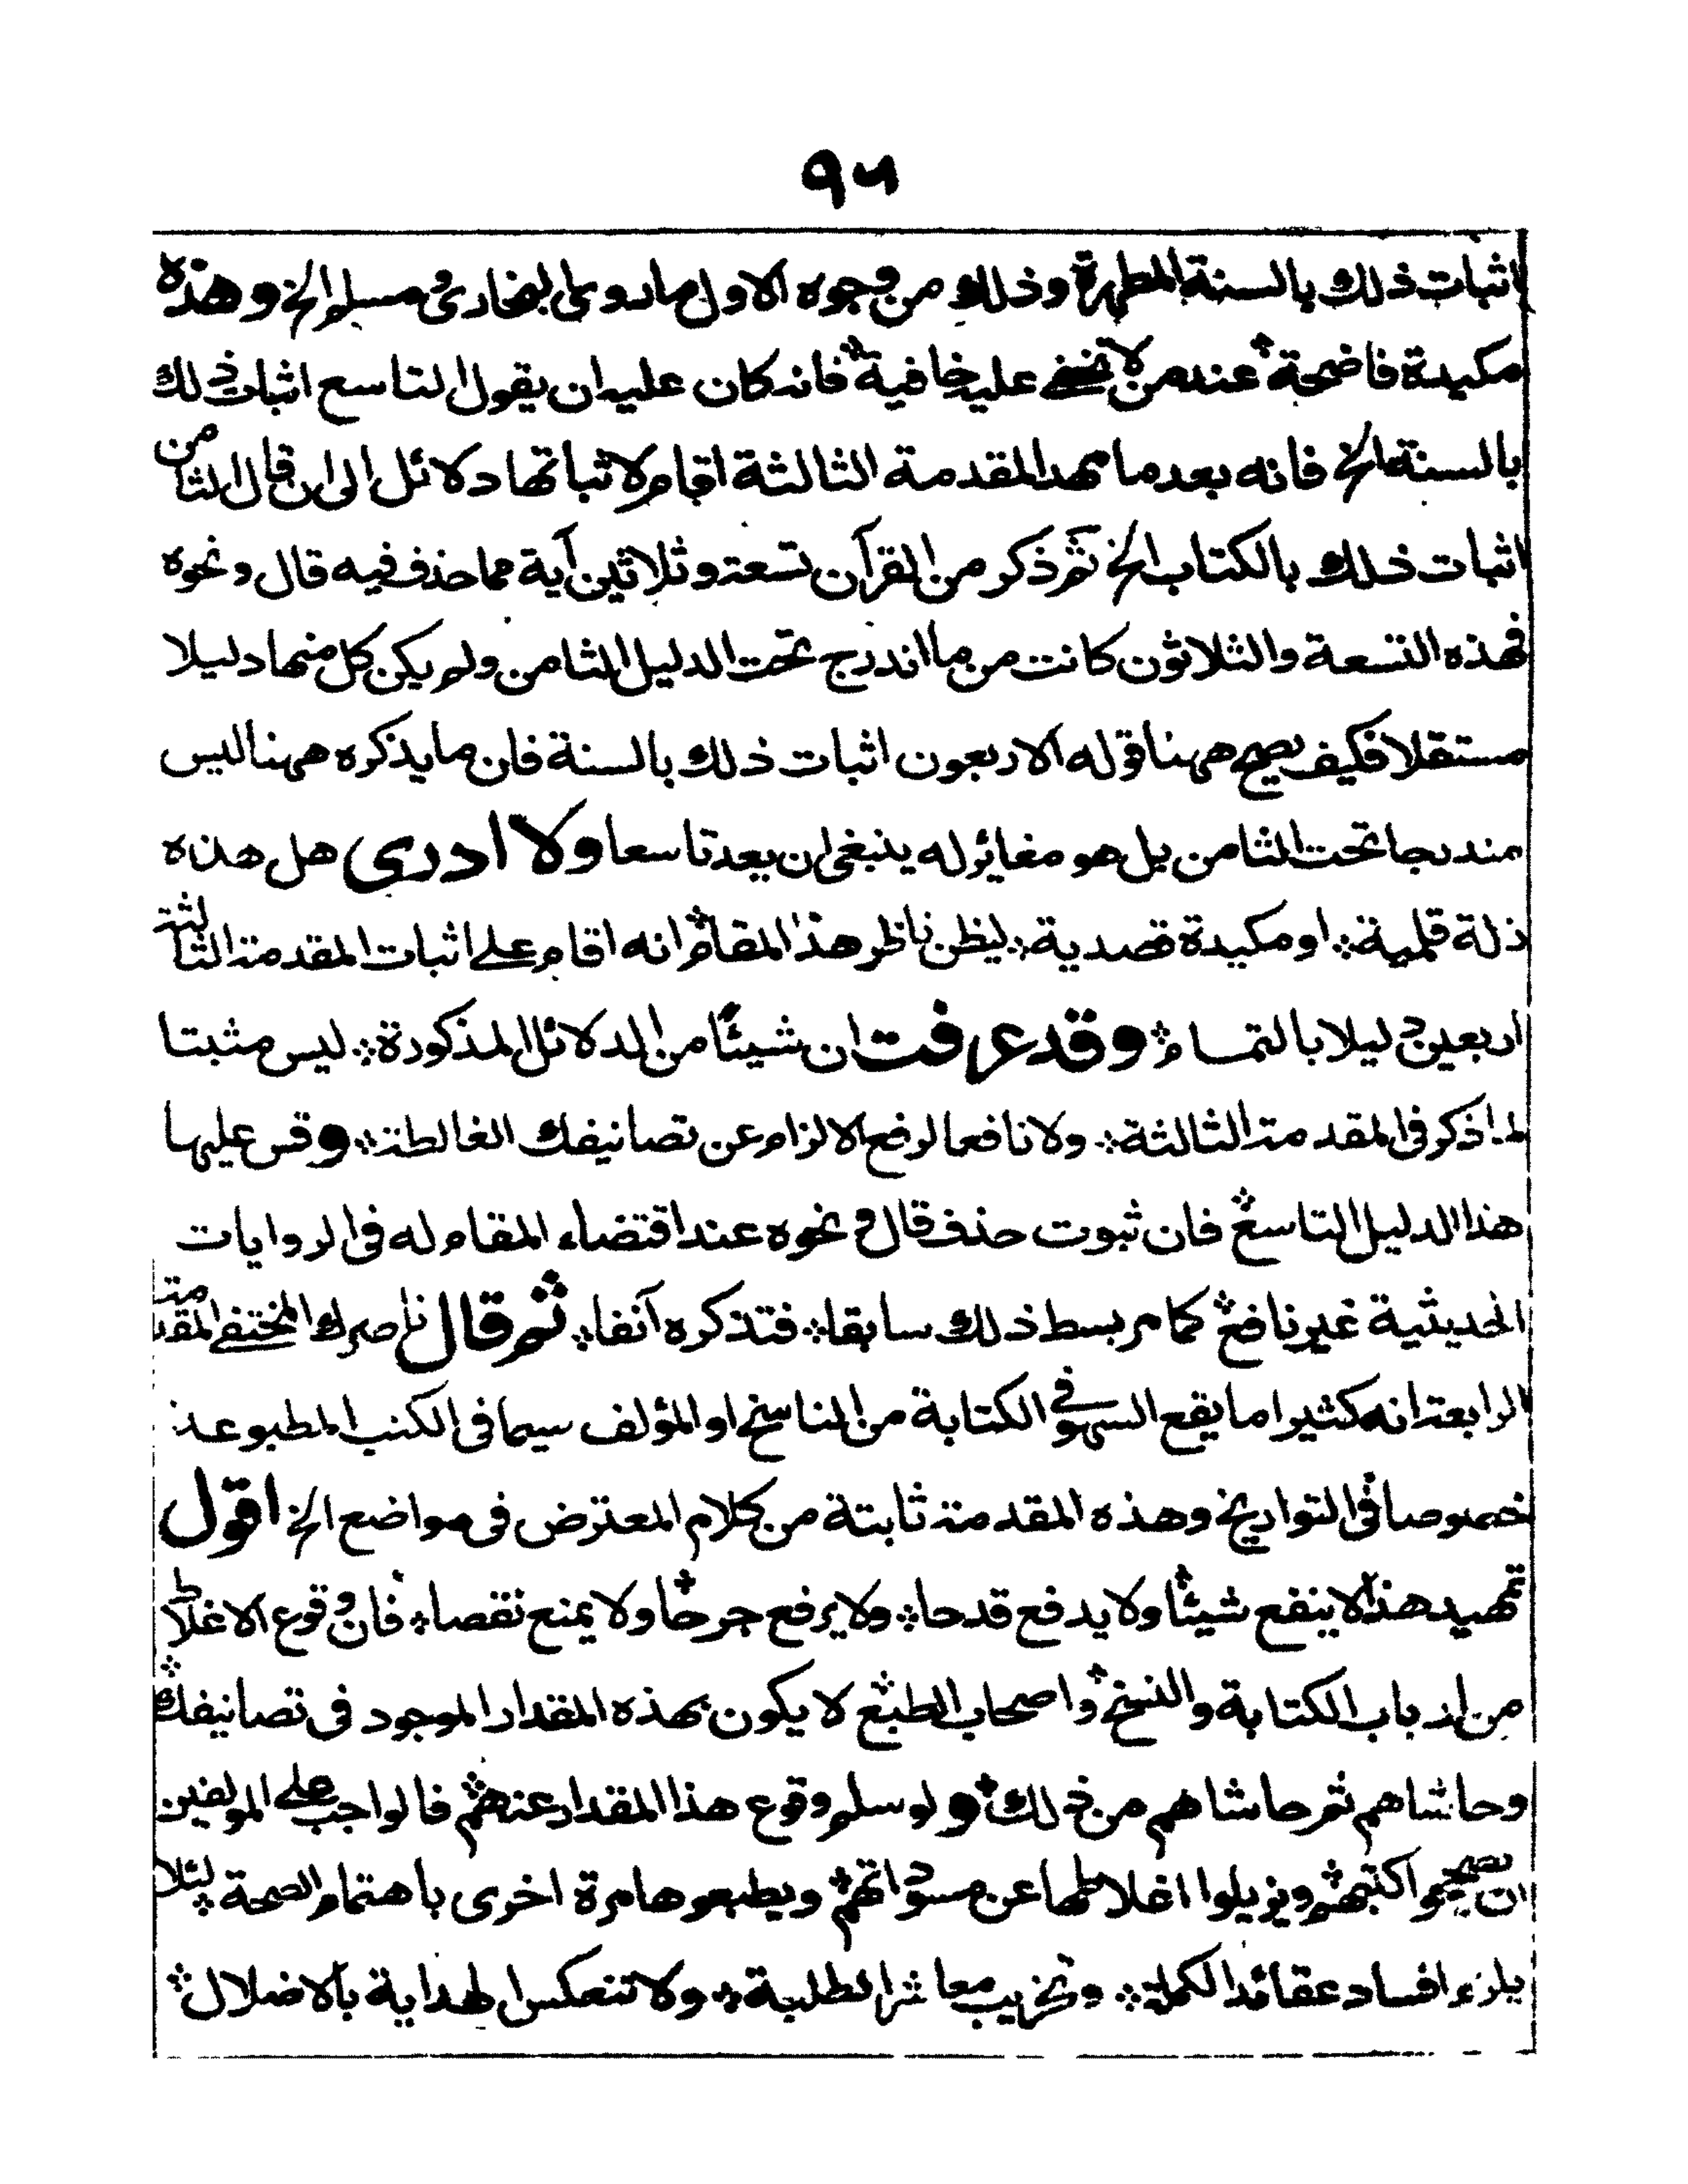 ٩٦
اثبات ذلك بالسنة المطهرة وذلك من وجوه الاول ما روى البخارى ومسلم الخ وهذه
مكيدة فاضحة عند من لا تخفى عليه خافية فانه كان عليه ان يقول التاسع اثبات ذلك
بالسنة الخ فانه بعد ما مهد المقدمة الثالثة اقام لاثباتها دلائل الى ان قال الثامن
اثبات ذلك بالكتاب الخ ثم ذكر من القرآن تسعة وثلاثين آية مما حذف فيه قال ونحوه
فهذه التسعة والثلاثون كانت من ما اندرج تحت الدليل الثامن ولم يكن كل منها دليلا
مستقلا فكيف يصح ههنا قوله الاربعون اثبات ذلك بالسنة فان ما يذكره ههنا ليس
مندرجا تحت الثامن بل هو مغائر له ينبغى ان يعد تاسعا ولا ادرى هل هذه
زلة قلمية او مكيدة قصدية ليظن ناظر هذا المقام انه اقام على اثبات المقدمة الثالثة
اربعين دليلا بالتمام وقد عرفت ان شيئا من الدلائل المذكورة ليس مثبتا
لما ذكر فى المقدمة الثالثة ولا نافعا لرفع الالزام عن تصانيفك الغالطة وقس عليها
هذا الدليل التاسع فان ثبوت حذف قال ونحوه عند اقتضاء المقام له فى الروايات
الحديثية غير نافع كما مر بسط ذلك سابقا فتذكره آنفا ثم قال ناصرك المختفى المقدمة
الرابعة انه كثيرا ما يقع السهو فى الكتابة من الناسخ او المؤلف سيما فى الكتب المطبوعة
خصوصا فى التواريخ وهذه المقدمة ثابتة من كلام المعترض فى مواضع الخ اقول
تمهيد هذا لا ينفع شيئا ولا يدفع قدحا ولا يرفع جرحا ولا يمنع نقصا فان وقوع الاغلاط
من ارباب الكتابة والنسخ واصحاب الطبع لا يكون بهذه المقدار الموجود فى تصانيفك
وحاشاهم ثم حاشاهم من ذلك ولو سلم وقوع هذا المقدار عنهم فالواجب على المولفين
ان يصححوا كتبهم ويزيلوا اغلاطها عن مسوداتهم ويطبعوها مرة اخرى باهتمام الصحة لئلا
يلزم افساد عقائد الكملة وتخريب معاشر الطلبة ولا تنعكس الهداية بالاضلال